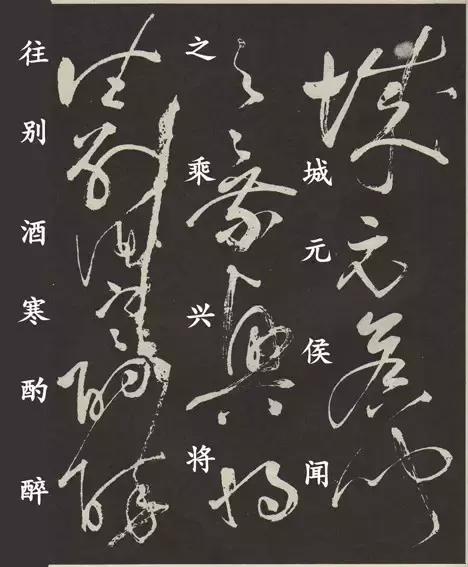 城元侯闻
之乘兴将
往别酒寒酌醉